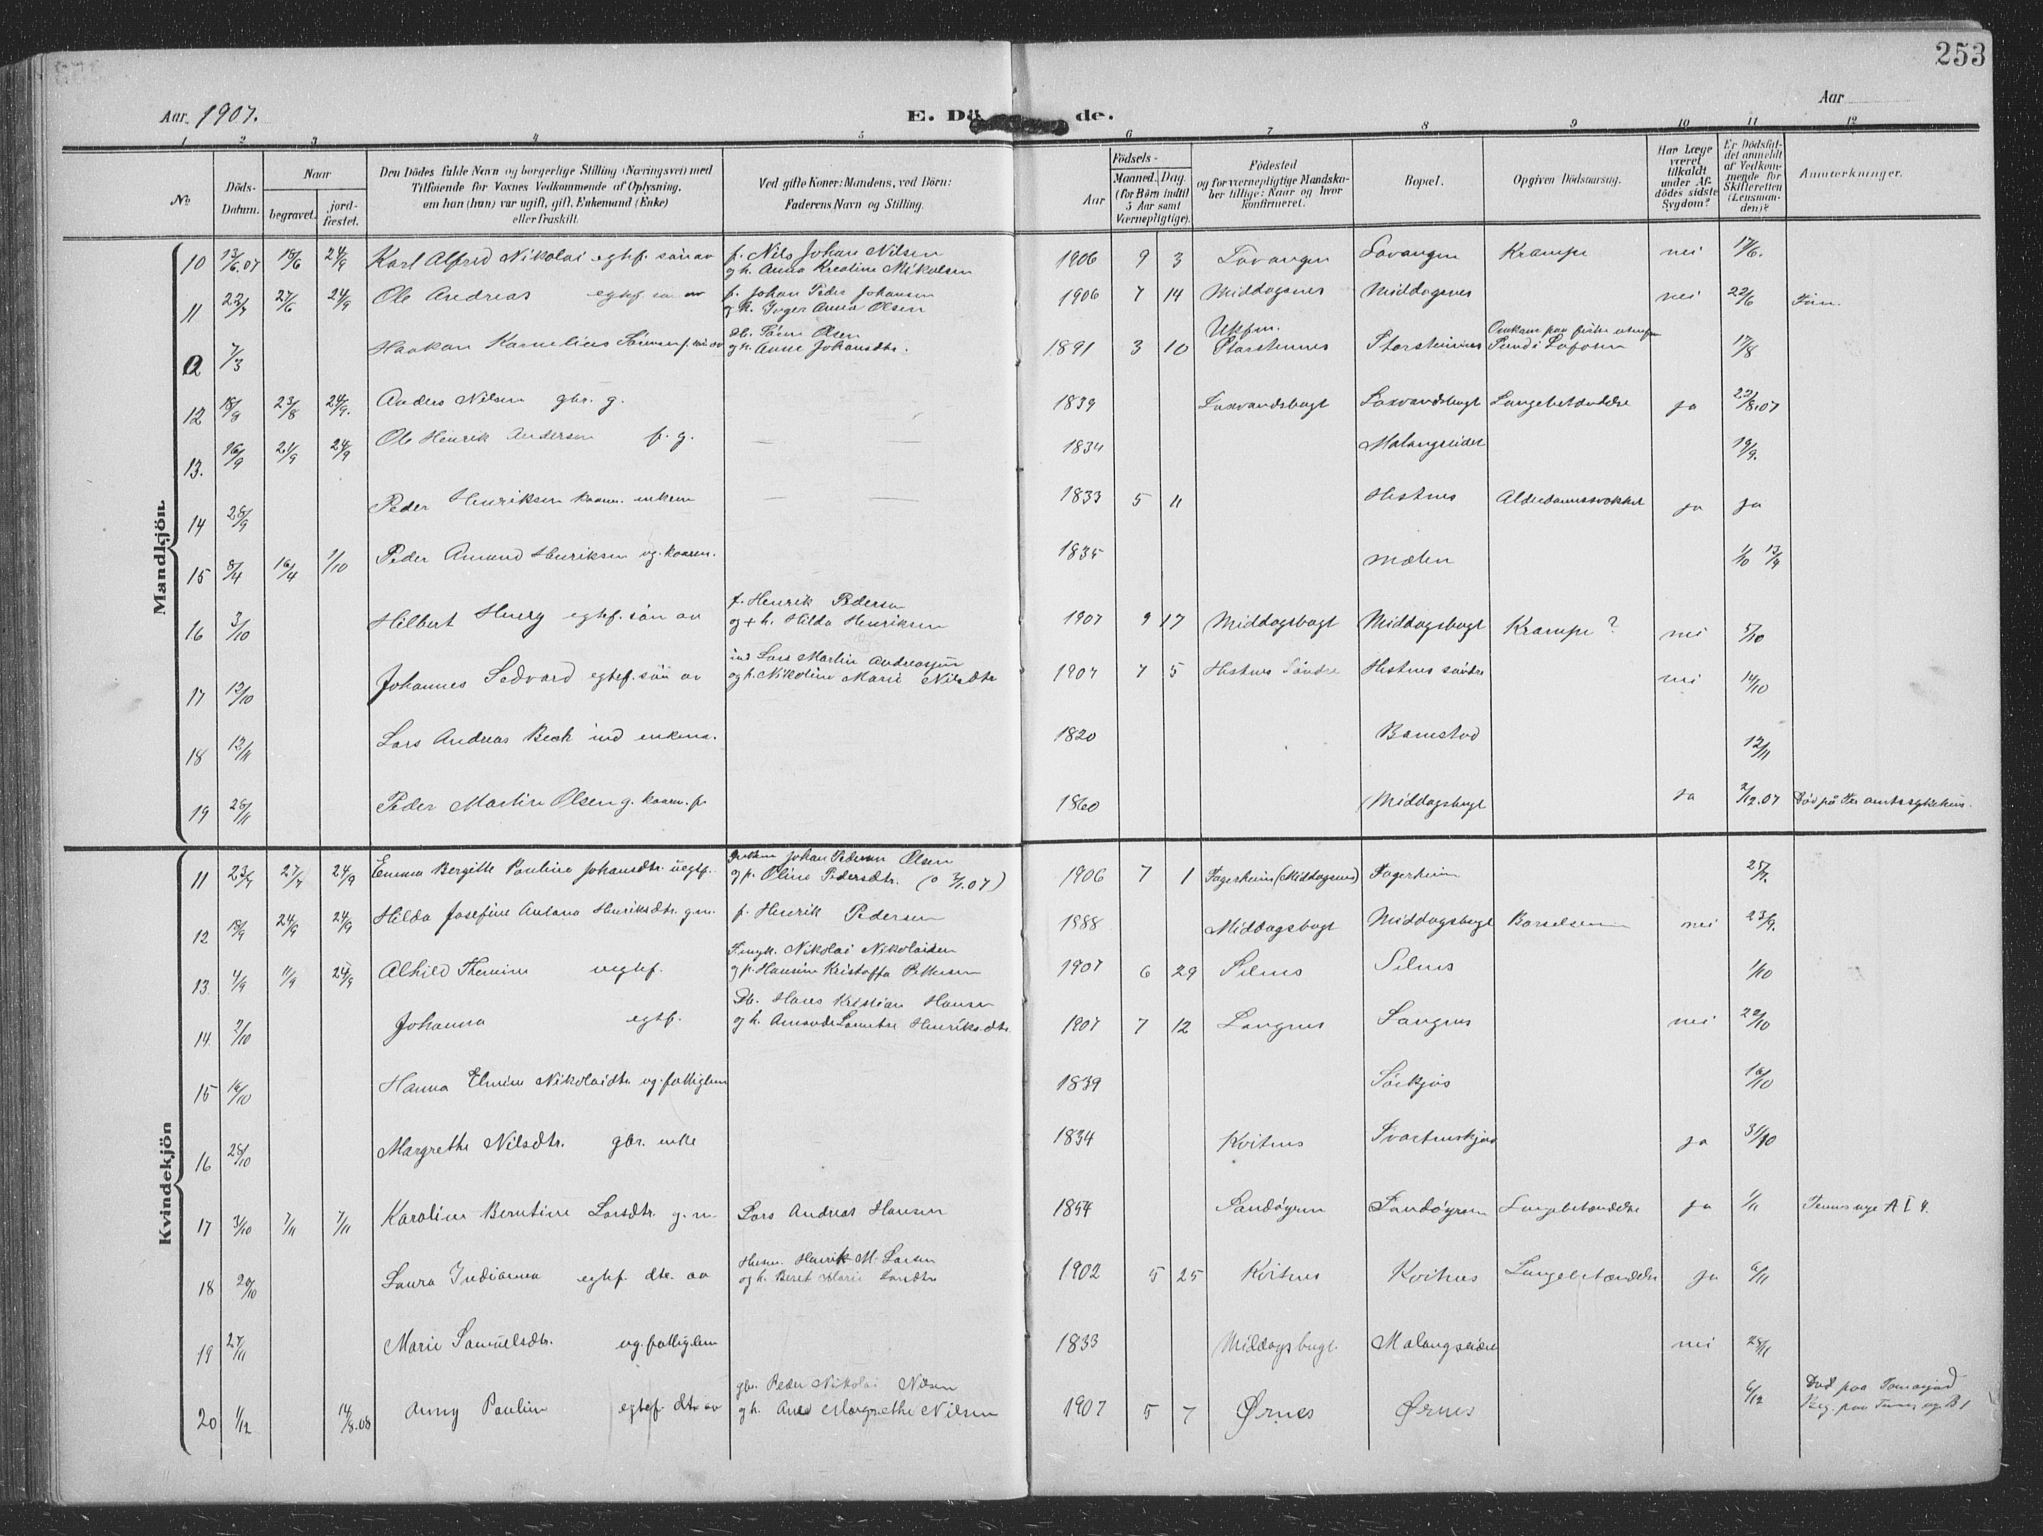 253
Aar 1907.
E. Dö de.
Aar
1 2 3 4 5 6 7 8 9 10 11 12
No
Döds-Datum.
Naar
begravet.
jord-fæstet.
Den Dödes fulde Navn og borgerlige Stilling (Næringsvei) med
Tilföiende for Voxnes Vedkommende af Oplysning,
om han (hun) var ugift, gift, Enkemand (Enke)
eller fraskilt.
Ved gifte Koner: Mandens, ved Börn:
Faderens Navn og Stilling.
Födsels-
Aar
Maaned. Dag.
(for Börn indtil
5 Aar samt
Værnepligtige).
Födested
og for værnepligtige Mandska-
ber tillige: Naar og hvor
konfirmeret.
Bopæl.
Opgiven Dödsaarsag.
Har Læge
været
tilkaldt
under Af-
dödes sidste
Sygdom?
Er Dödsfal-
det anmeldt
af Vedkom-
mende for
Skifteretten
(Lensman-
den)?
Anmærkninger.
Mandkjön.
10 13/6.07 18/6 24/9 Karl Alfred Nikolai egtef. sön av f. Nils Johan Nilsen
og h. Anna Krestine Mikolsen 1906 9 3 Lavangen Lavangen Krampe nei 17/6.
11 27/6 24/9 Ole Andreas egtef. sön av f. Johan Peder Johansen
og h. Inger Anna Olsen 1906 7 14 Middagsnes Middagsnes nei 22/6
7/3 Haakon Kornelius Sörensen Olsen
og h. Anne Johansdtr. 1891 3 10 Storsteinnes Storsteinnes Omkom paa fiske 17/8
12 18/8 23/8 24/9. Anders Nilsen gbr. g. 1839 Laxvandsbugt Laxvandsbugt Lungebetændelse ja 22/8.07
13. 16/9 21/9 24/9 Ole Henrik Andersen f. g. 1834 Malangseidet 19/9.
14 28/9 Peder Henriksen kaarm. enkem 1833 5 11 Hestnes Alderdomssvækket ja ja
15 8/4 16/4 1/10 Peder Amund Henriksen ug. kaarm. 1835 Mælen 1/10
16 3/10 Hilbert Henry egtef. sön av f. Henrik Pedersen
og h. Hilda Henriksen 1907 9 17 Middagsbugt Middagsbugt Krampe? nei 5/10
17 12/10 Johannes Sedvard egtef. sön av ind. Lars Martin Andreassen
og h. Nikoline Marie Nilsdtr 1907 7 5 Hestnes Söndre Hestnes söndre nei 14/10
18 12/11 Lars Andreas Beck ind enkem. 1820 12/11
19 26/11 Peder Martin Olsen g. kaarm. f. 1860 Middagsbugt Ja 2/12.07 Död på amtssykehus.
Kvindekjön
11 23/7 27/7 24/9 Emma Bergitte Pauline Johansdtr. uegtef. Johan Pedersen Olsen
og p. Oline Pedersdtr. 1906 7 1 Fagerheim (Middagsnes) Fagerheim 25/7.
12 18/9 24/9 24/9 Hilda Josefine Antona Henriksdtr. g.m. f. Henrik Pedersen 1888 Middagsbugt Middagsbugt Barselseng nei 23/9.
13. 4/9 11/9 24/9 Alhild uegtef. Nikolai Nikolaisen
og p. Hansine Kristoffa Pettersen 1907 6 29 Selnes Selnes 1/10
14. 2/10 Johanna egtef. Hans Kristian Hansen
og h. Amanda Henriksdtr. 1907 7 12 Langnes Langnes nei 22/10
15 14/10 Hanna Elmine Nikolaidtr. ug. fattiglem 1839 Sörkjos 16/10
16 28/10 Margrethe Nilsdtr. gbr. enke 1834 Kvitnes ja 31/10
17 3/10 7/11 7/11 Karoline Berntine Larsdtr. g. m. Lars Andreas Hansen 1854 Sandöyren Sandöyren Lungebetændelse ja 1/11 A I 4.
18 20/10 Laura Indianna egtef. dtr. av Husm. Henrik M. Larsen
og h. Beret Marie Larsdtr 1902 5 25 Kvitnes Kvitnes Lungebetændelse Ja 6/11
19 27/11 Marie Samuelsdtr. ug. fattiglem 1833 Middagsbugt Malangseidet nei 28/11
20 1/12 14/8.08 Anny Pauline egtef. dtr. av gbr. Peder Nikolai Nilsen
og h. Ane Margrethe Nilsen 1907 5 7 Örnes Örnes 6/12 Död paa
Beg. paa B 1